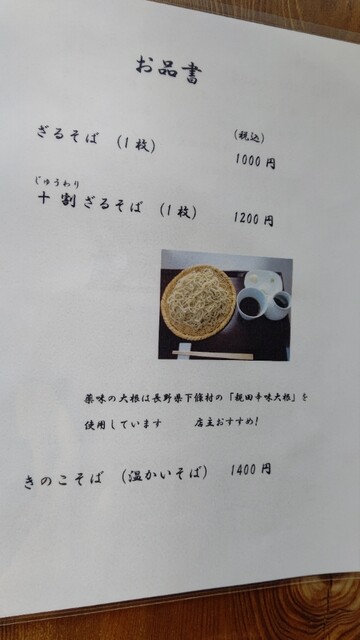 お品書
(税込)
ざるそば (1枚) 1000円
じゅうわり
十割ざるそば (1枚) 1200円
薬味の大根は長野県下條村の「親田辛味大根」を
使用しています 店主おすすめ!
きのこそば (温かいそば) 1400円